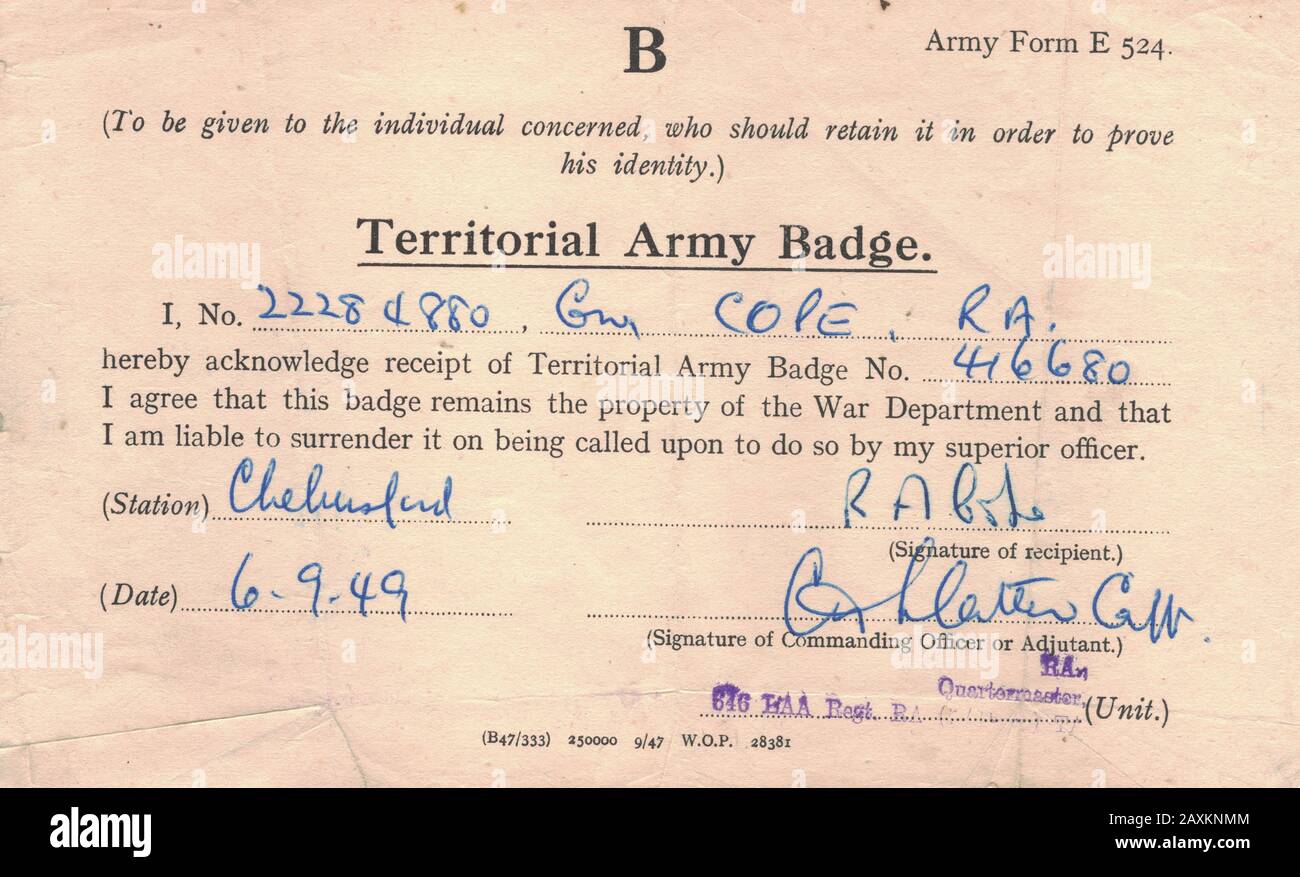 B
Army Form E 524.
(To be given to the individual concerned, who should retain it in order to prove
his identity.)
Territorial Army Badge.
I, No. 22284880, Gnr COPE, RA.
hereby acknowledge receipt of Territorial Army Badge No. 416680
I agree that this badge remains the property of the War Department and that
I am liable to surrender it on being called upon to do so by my superior officer.
(Station) Chelmsford R A Cope
(Signature of recipient.)
(Date) 6-9-49 Capt.
(Signature of Commanding Officer or Adjutant.)
Quartermaster,
646 Regt. RA (Unit.)
(B47/333) 250000 9/47 W.O.P. 28381
alamy
alamy
alamy
alamy
alamy
Image ID: 2AXKNMM
www.alamy.com